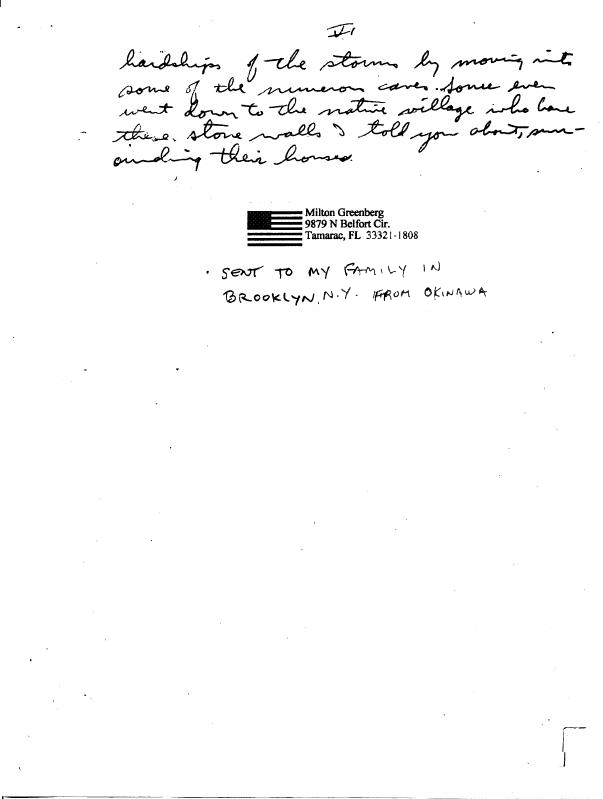 VI
hardships of the storms by moving into
some of the numerous caves. Some even
went down to the native village who have
these stone walls I told you about, surr-
ounding their houses.
Milton Greenberg
9879 N Belfort Cir.
Tamarac, FL 33321-1808
SENT TO MY FAMILY IN
BROOKLYN, N.Y. FROM OKINAWA